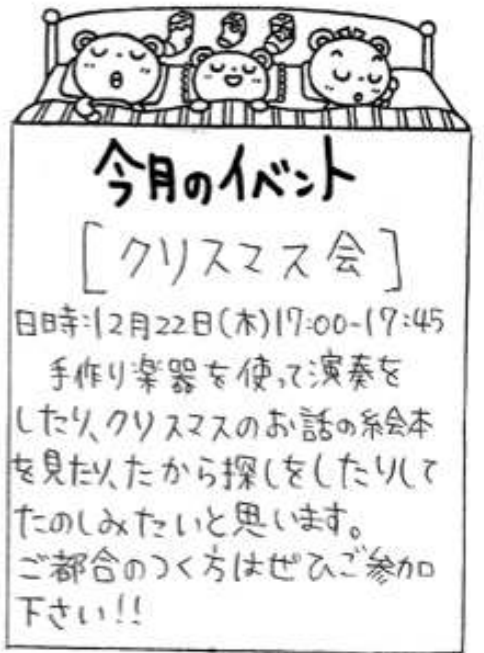 今月のイベント
[クリスマス会]
日時:12月22日(木)17:00-17:45
手作り楽器を使って演奏を
したり、クリスマスのお話の絵本
を見たり、たから探しをしたりして
たのしみたいと思います。
ご都合のつく方はぜひご参加
下さい!!